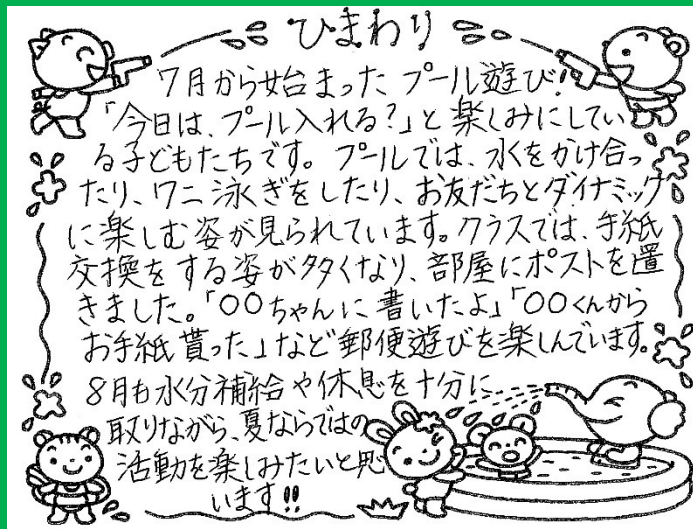 ひまわり
7月から始まったプール遊び!
「今日は、プール入れる?」と楽しみにしてい
る子どもたちです。プールでは、水をかけ合っ
たり、ワニ泳ぎをしたり、お友だちとダイナミック
に楽しむ姿が見られています。クラスでは、手紙
交換をする姿が多くなり、部屋にポストを置
きました。「〇〇ちゃんに書いたよ」「〇〇くんから
お手紙貰った」など郵便遊びを楽しんでいます。
8月も水分補給や休息を十分に
取りながら、夏ならではの
活動を楽しみたいと思
います!!